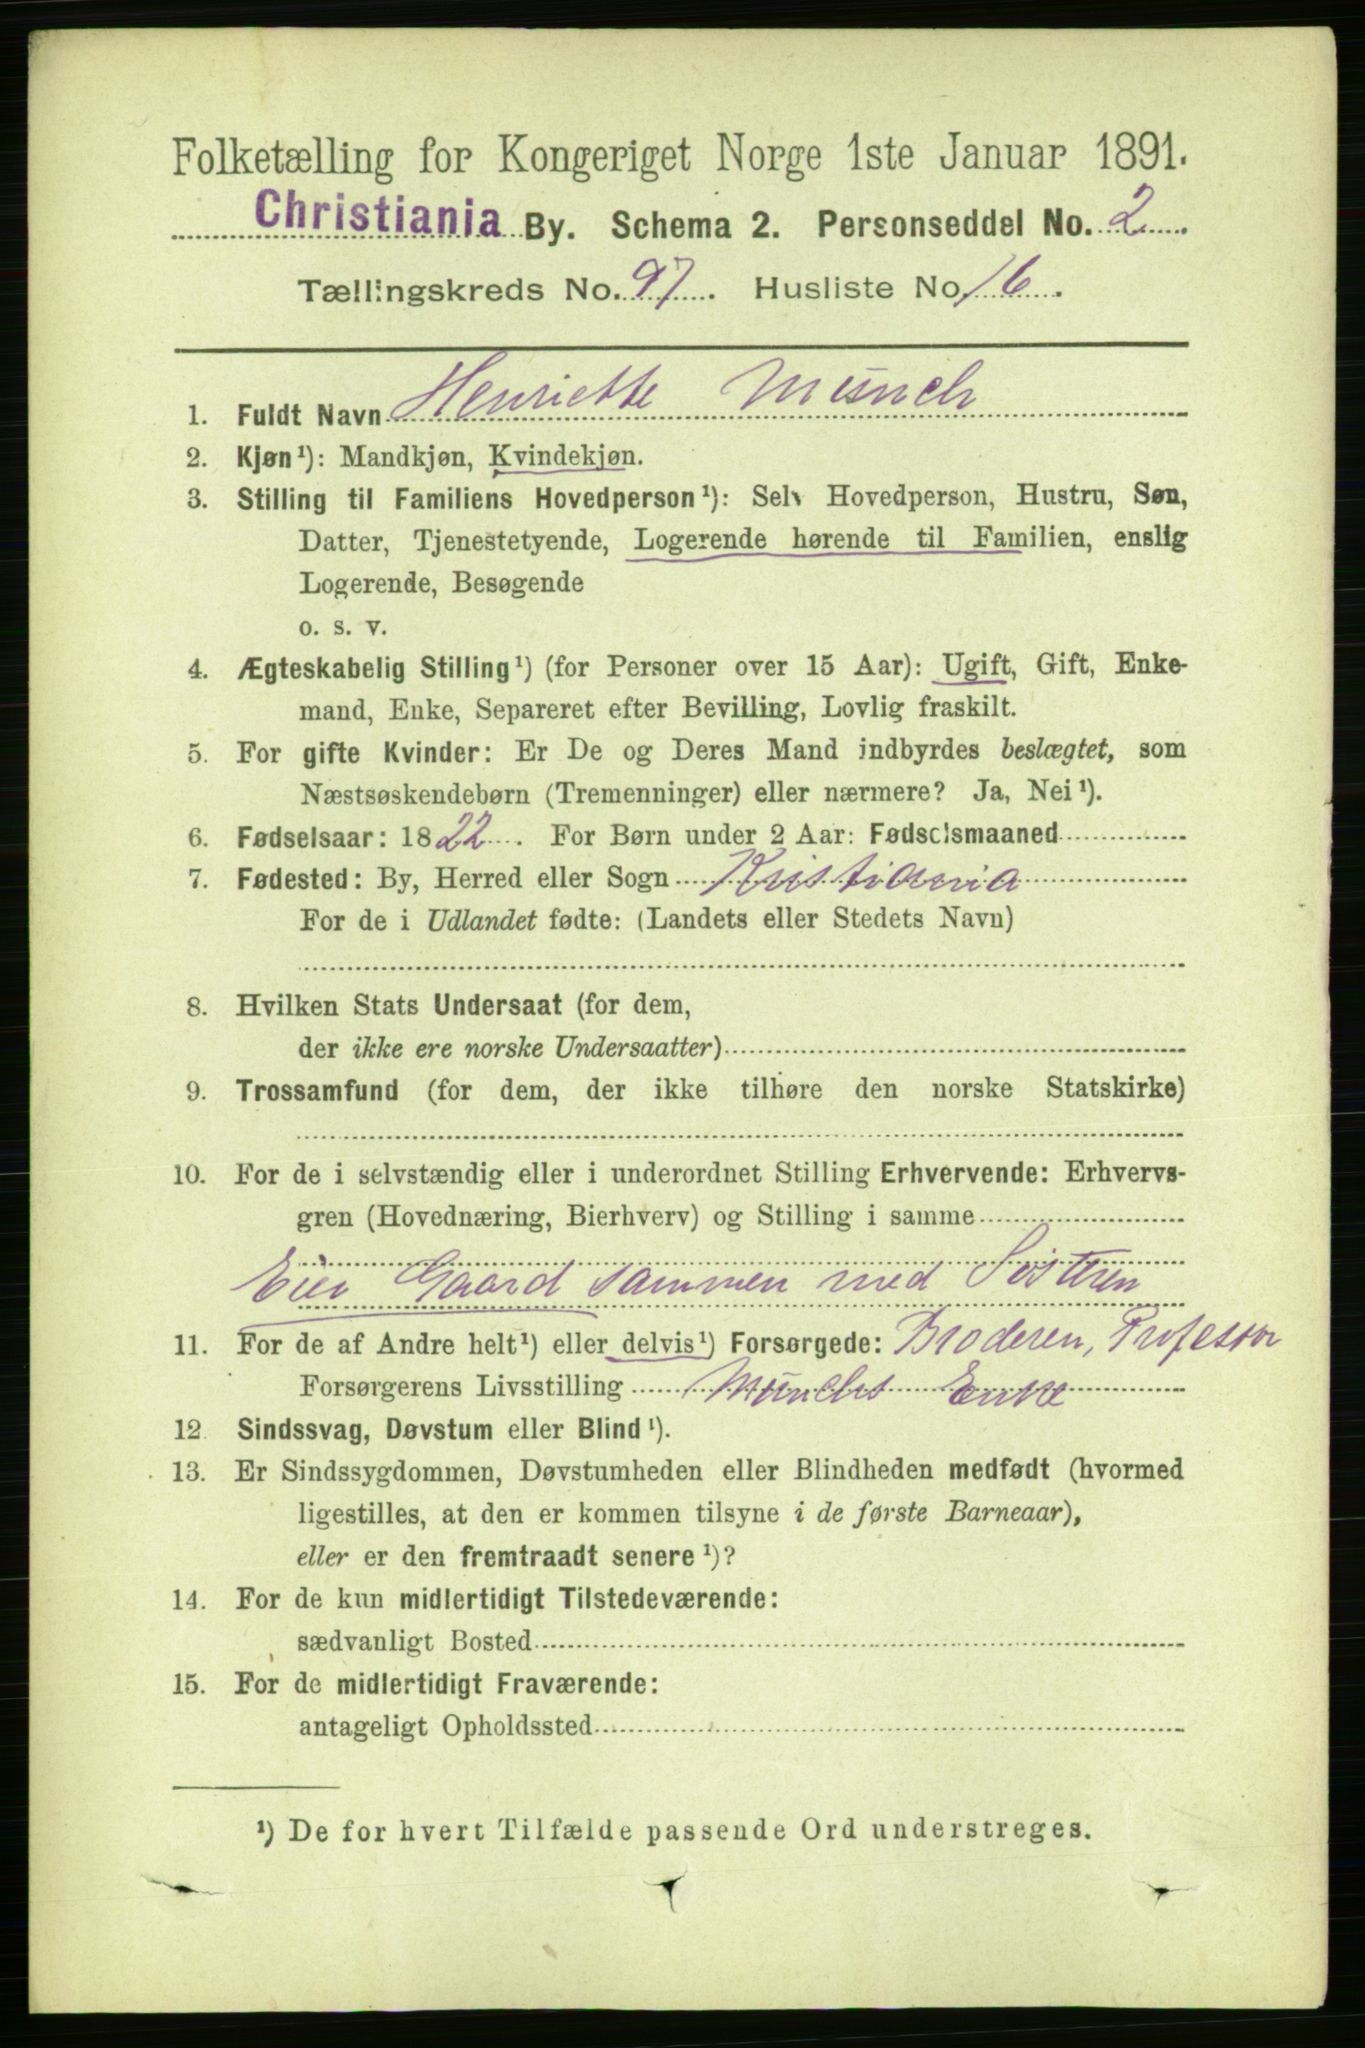 Folketælling for Kongeriget Norge 1ste Januar 1891.
Christiania By. Schema 2. Personseddel No. 2
Tællingskreds No. 97. Husliste No. 16.
1. Fuldt Navn Henriette Munch
2. Kjøn¹): Mandkjøn, Kvindekjøn.
3. Stilling til Familiens Hovedperson¹): Selv Hovedperson, Hustru, Søn,
Datter, Tjenestetyende, Logerende hørende til Familien, enslig
Logerende, Besøgende
o. s. v.
4. Ægteskabelig Stilling¹) (for Personer over 15 Aar): Ugift, Gift, Enke-
mand, Enke, Separeret efter Bevilling, Lovlig fraskilt.
5. For gifte Kvinder: Er De og Deres Mand indbyrdes beslægtet, som
Næstsøskendebørn (Tremenninger) eller nærmere? Ja, Nei¹).
6. Fødselsaar: 1822. For Børn under 2 Aar: Fødselsmaaned
7. Fødested: By, Herred eller Sogn Kristiania
For de i Udlandet fødte: (Landets eller Stedets Navn)
8. Hvilken Stats Undersaat (for dem,
der ikke ere norske Undersaatter)
9. Trossamfund (for dem, der ikke tilhøre den norske Statskirke)
10. For de i selvstændig eller i underordnet Stilling Erhvervende: Erhvervs-
gren (Hovednæring, Bierhverv) og Stilling i samme
Eier Gaard sammen med Søsteren
11. For de af Andre helt¹) eller delvis¹) Forsørgede: Broderen, Professor
Forsørgerens Livsstilling Munchs Enke
12. Sindssvag, Døvstum eller Blind¹).
13. Er Sindssygdommen, Døvstumheden eller Blindheden medfødt (hvormed
ligestilles, at den er kommen tilsyne i de første Barneaar),
eller er den fremtraadt senere¹)?
14. For de kun midlertidigt Tilstedeværende:
sædvanligt Bosted
15. For de midlertidigt Fraværende:
antageligt Opholdssted
¹) De for hvert Tilfælde passende Ord understreges.